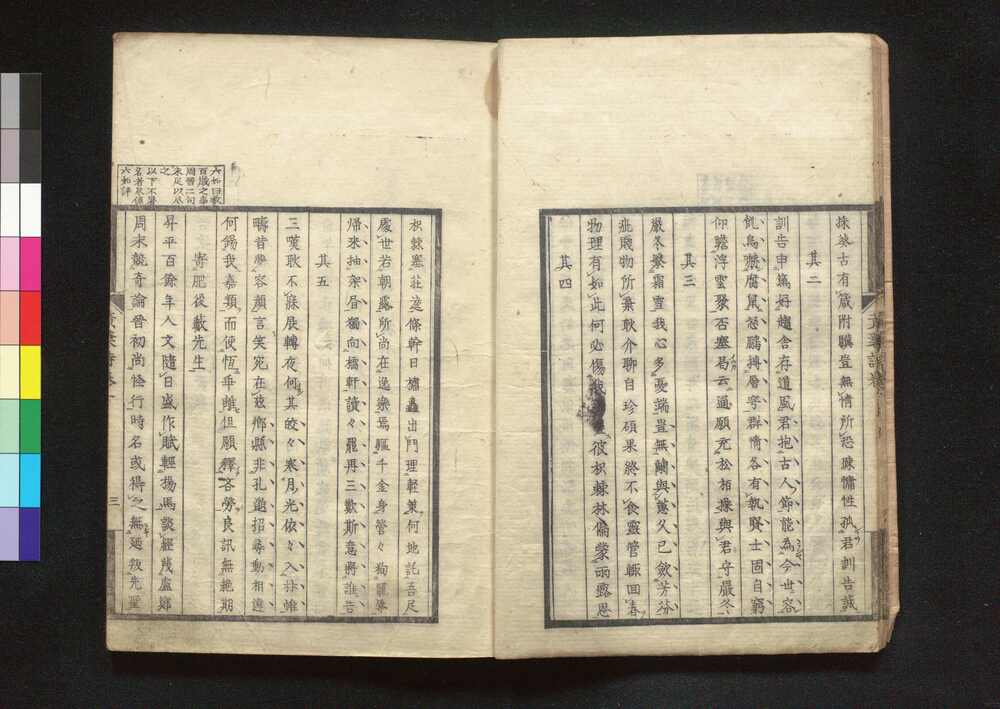 採菜古有箴附驥豈無情所恐疎慵性孤君訓告誠
其二
訓告申篤好趨舍存道風君抱古人節能為今世容
飢烏嚇腐鼠怒鵬摶層穹群情各有執賢士固自窮
仰瞻浮雲聚否塞曷云通願充松柏操與君守嚴冬
其三
嚴冬繁霜雪我心多憂端豈無蘭與蕙久已斂芳芬
疵賤物所棄耿介聊自珍碩果終不食靈管輙回春
物理有如此何必傷彼枳棘林偏蒙雨露恩
其四
枳棘塞壯逵條幹日擁蟲出門理輕策何地託吾足
處世若朝露所尚在逸樂焉驅千金身管々狥寵辱
歸來抽架書獨向橋軒讀々罷再三歎斯意將誰告
其五
三嘆耿不寐展轉夜何其皎々寒月光依々入牀帷
疇昔夢容顏言笑宛在玆鄉縣非孔邇招尋動相違
何錫我嘉類而使恆乖離但願釋吝勞良訊無絶期
寄肥後藪先生
昇平百餘年人文隨日盛作賦輕揚馬談經蔑盧鄭
周末競奇論晉初尚怪行時名或得之無廼叛先聖
三
六如曰歌
百歲之事
周晉二句
未足以尽
之
以下不署
名者又係
六如評